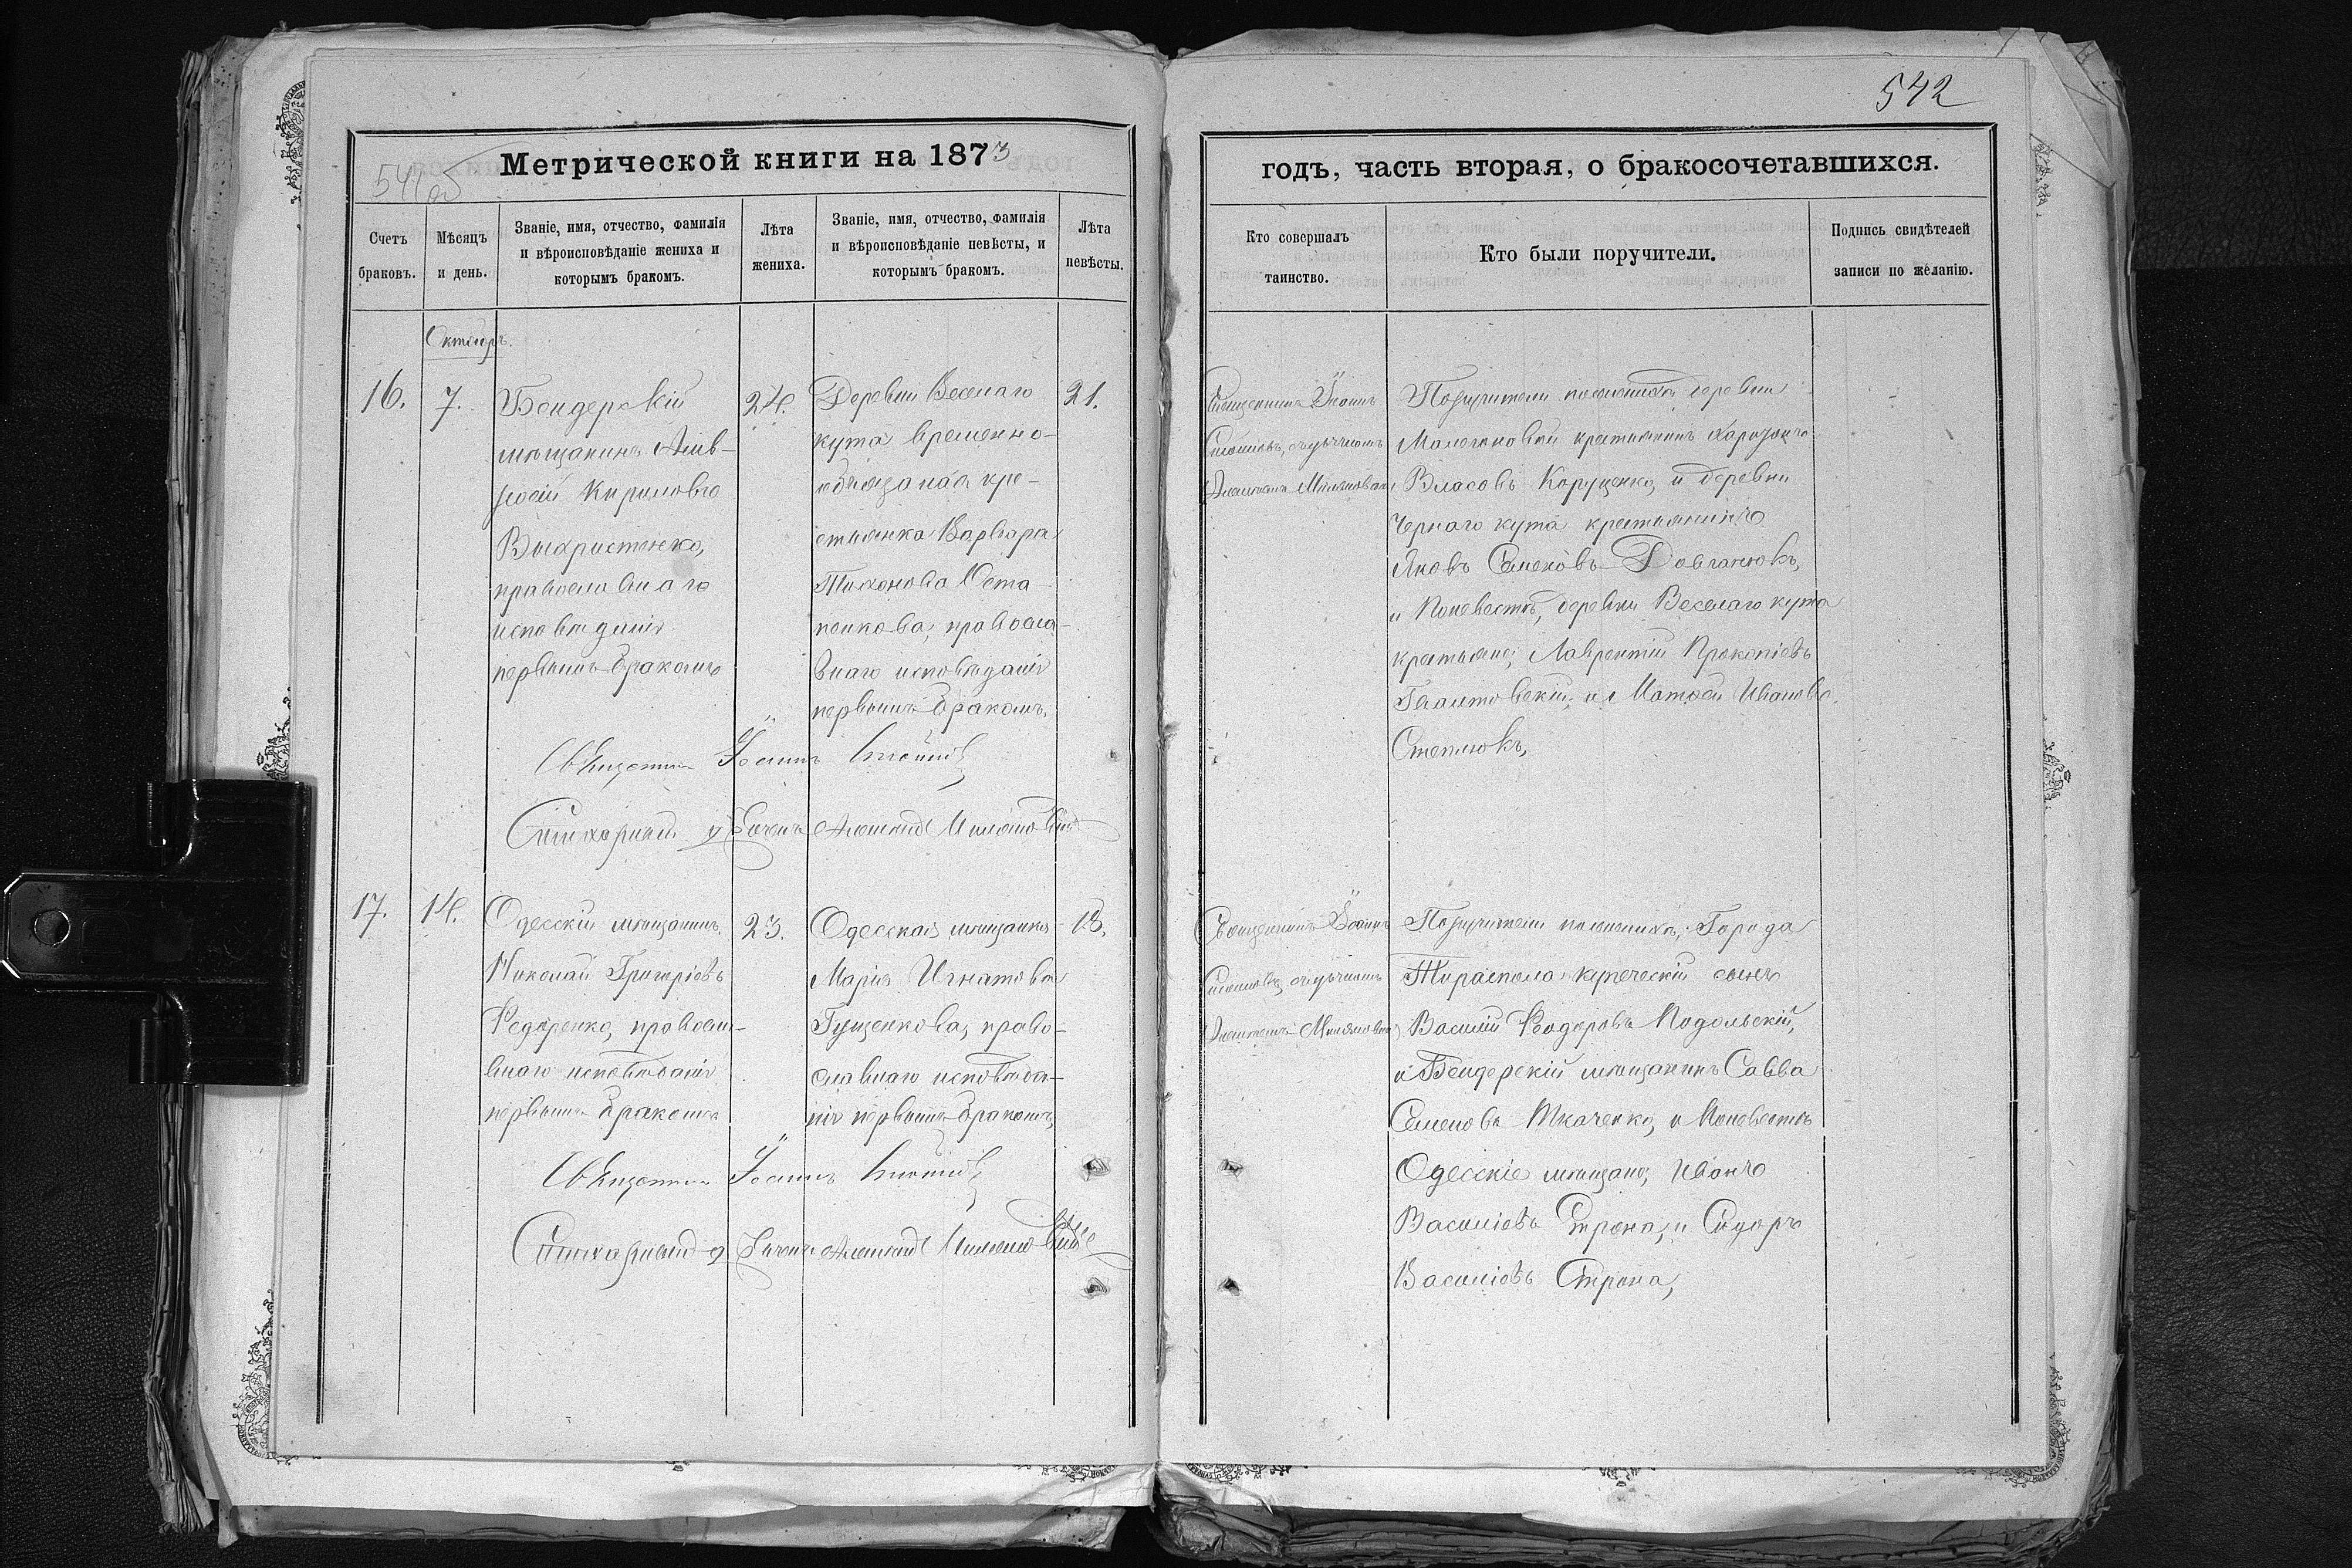 542
541об
Метрической книги на 1873
годъ, часть вторая, о бракосочетавшихся.
Счетъ браковъ.
Мѣсяцъ и день.
Званіе, имя, отчество, фамилія
и вѣроисповѣданіе жениха и
которымъ бракомъ.
Лѣта
жениха.
Званіе, имя, отчество, фамилія
и вѣроисповѣданіе невѣсты, и
которымъ бракомъ.
Лѣта
невѣсты.
Кто совершалъ
таинство.
Кто были поручители.
Подпись свидѣтелей
записи по желанію.
Октябрь.
16.
7.
Бендерскій
мѣщанинъ
Кириловъ
Выхристенко,
православнаго
исповѣданія
первымъ бракомъ
24.
Деревни Веселаго
кута временно-
обязаная кре-
стьянка Варвара
Тихонова Оста-
пенкова, правосла-
внаго исповѣданія
первымъ бракомъ.
21.
Священникъ Іоаннъ
съ причтомъ
Поручители по женихѣ деревни
крестьянинъ
Власовъ Корущенко, и деревни
Чернаго кута крестьянинъ
Яковъ Семеновъ Довганюкъ,
и по невестѣ, деревни Веселаго кута
крестьяне, Лаврентій Прокопіевъ
и Матѳей Ивановъ
Священникъ Іоаннъ
17.
14.
Одесскій мѣщанинъ
Николай Григоріевъ
Федоренко, правосла-
внаго исповѣданія
первымъ бракомъ
23.
Одесская мѣщанка
Марія Игнатова
Гущенкова, право-
славнаго исповѣда-
нія первымъ бракомъ,
18.
Священникъ Іоаннъ
съ причтомъ
Поручители по женихѣ, Города
Тирасполя купеческій сынъ
Василій Феодоровъ Подольскій,
и Бендерскій мѣщанинъ Савва
Семеновъ Ткаченко, и по невестѣ
Одесскіе мѣщане, Иванъ
Василіевъ Строка, и Сидоръ
Василіевъ Строка,
Священникъ Іоаннъ